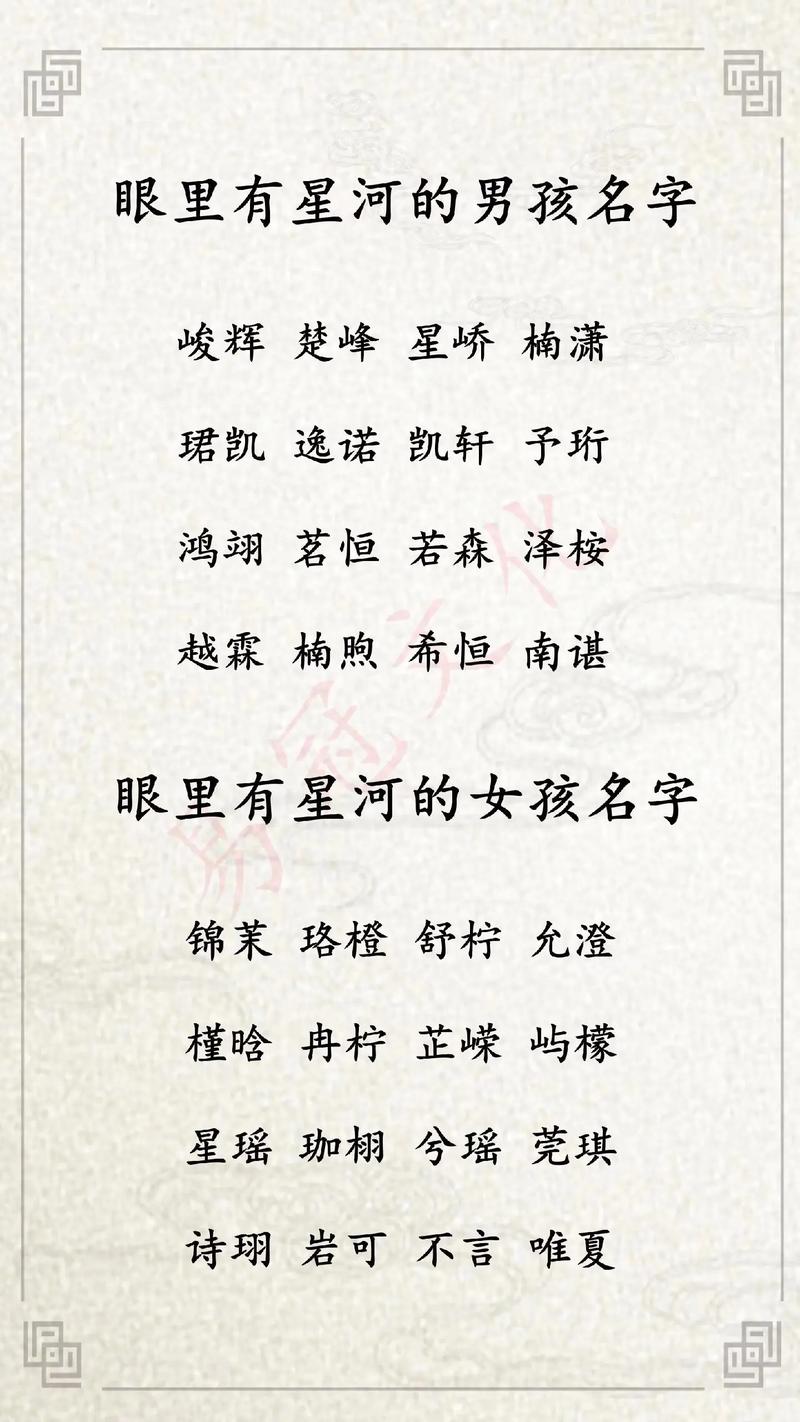 眼里有星河的男孩名字
峻辉 楚峰 星峤 楠潇
珺凯 逸诺 凯轩 予珩
鸿翊 茗恒 若森 泽桉
越霖 楠煦 希恒 南谌
眼里有星河的女孩名字
锦茉 珞橙 舒柠 允澄
槿晗 冉柠 芷嵘 屿檬
星瑶 珈栩 兮瑶 莞琪
诗珝 岩可 不言 唯夏
易冠文化